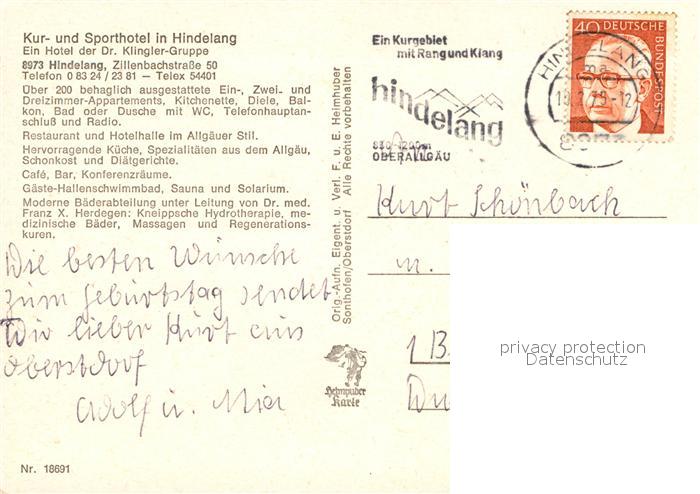 Kur- und Sporthotel in Hindelang
Ein Hotel der Dr. Klingler-Gruppe
8973 Hindelang, Zillenbachstraße 50
Telefon 0 83 24 / 23 81 — Telex 54401
Über 200 behaglich ausgestattete Ein-, Zwei- und
Dreizimmer-Appartements, Kitchenette, Diele, Bal-
kon, Bad oder Dusche mit WC, Telefonhauptan-
schluß und Radio.
Restaurant und Hotelhalle im Allgäuer Stil.
Hervorragende Küche, Spezialitäten aus dem Allgäu,
Schonkost und Diätgerichte.
Café, Bar, Konferenzräume.
Gäste-Hallenschwimmbad, Sauna und Solarium.
Moderne Bäderabteilung unter Leitung von Dr. med.
Franz X. Herdegen: Kneippsche Hydrotherapie, me-
dizinische Bäder, Massagen und Regenerations-
kuren.
Die besten Wünsche
zum Geburtstag sendet
Dir lieber Kurt aus
Oberstdorf
Adolf u.
Nr. 18691
Orig.-Aufn. Eigent. u. Verl. F. u. E. Heimhuber
Sonthofen/Oberstdorf Alle Rechte vorbehalten
Heimhuber
Karte
Ein Kurgebiet
mit Rang und Klang
hindelang
850-1200m
OBERALLGÄU
40 DEUTSCHE
BUNDESPOST
HINDELANG
8973
Kurt Schönbach
u.
1 B
privacy protection
Datenschutz